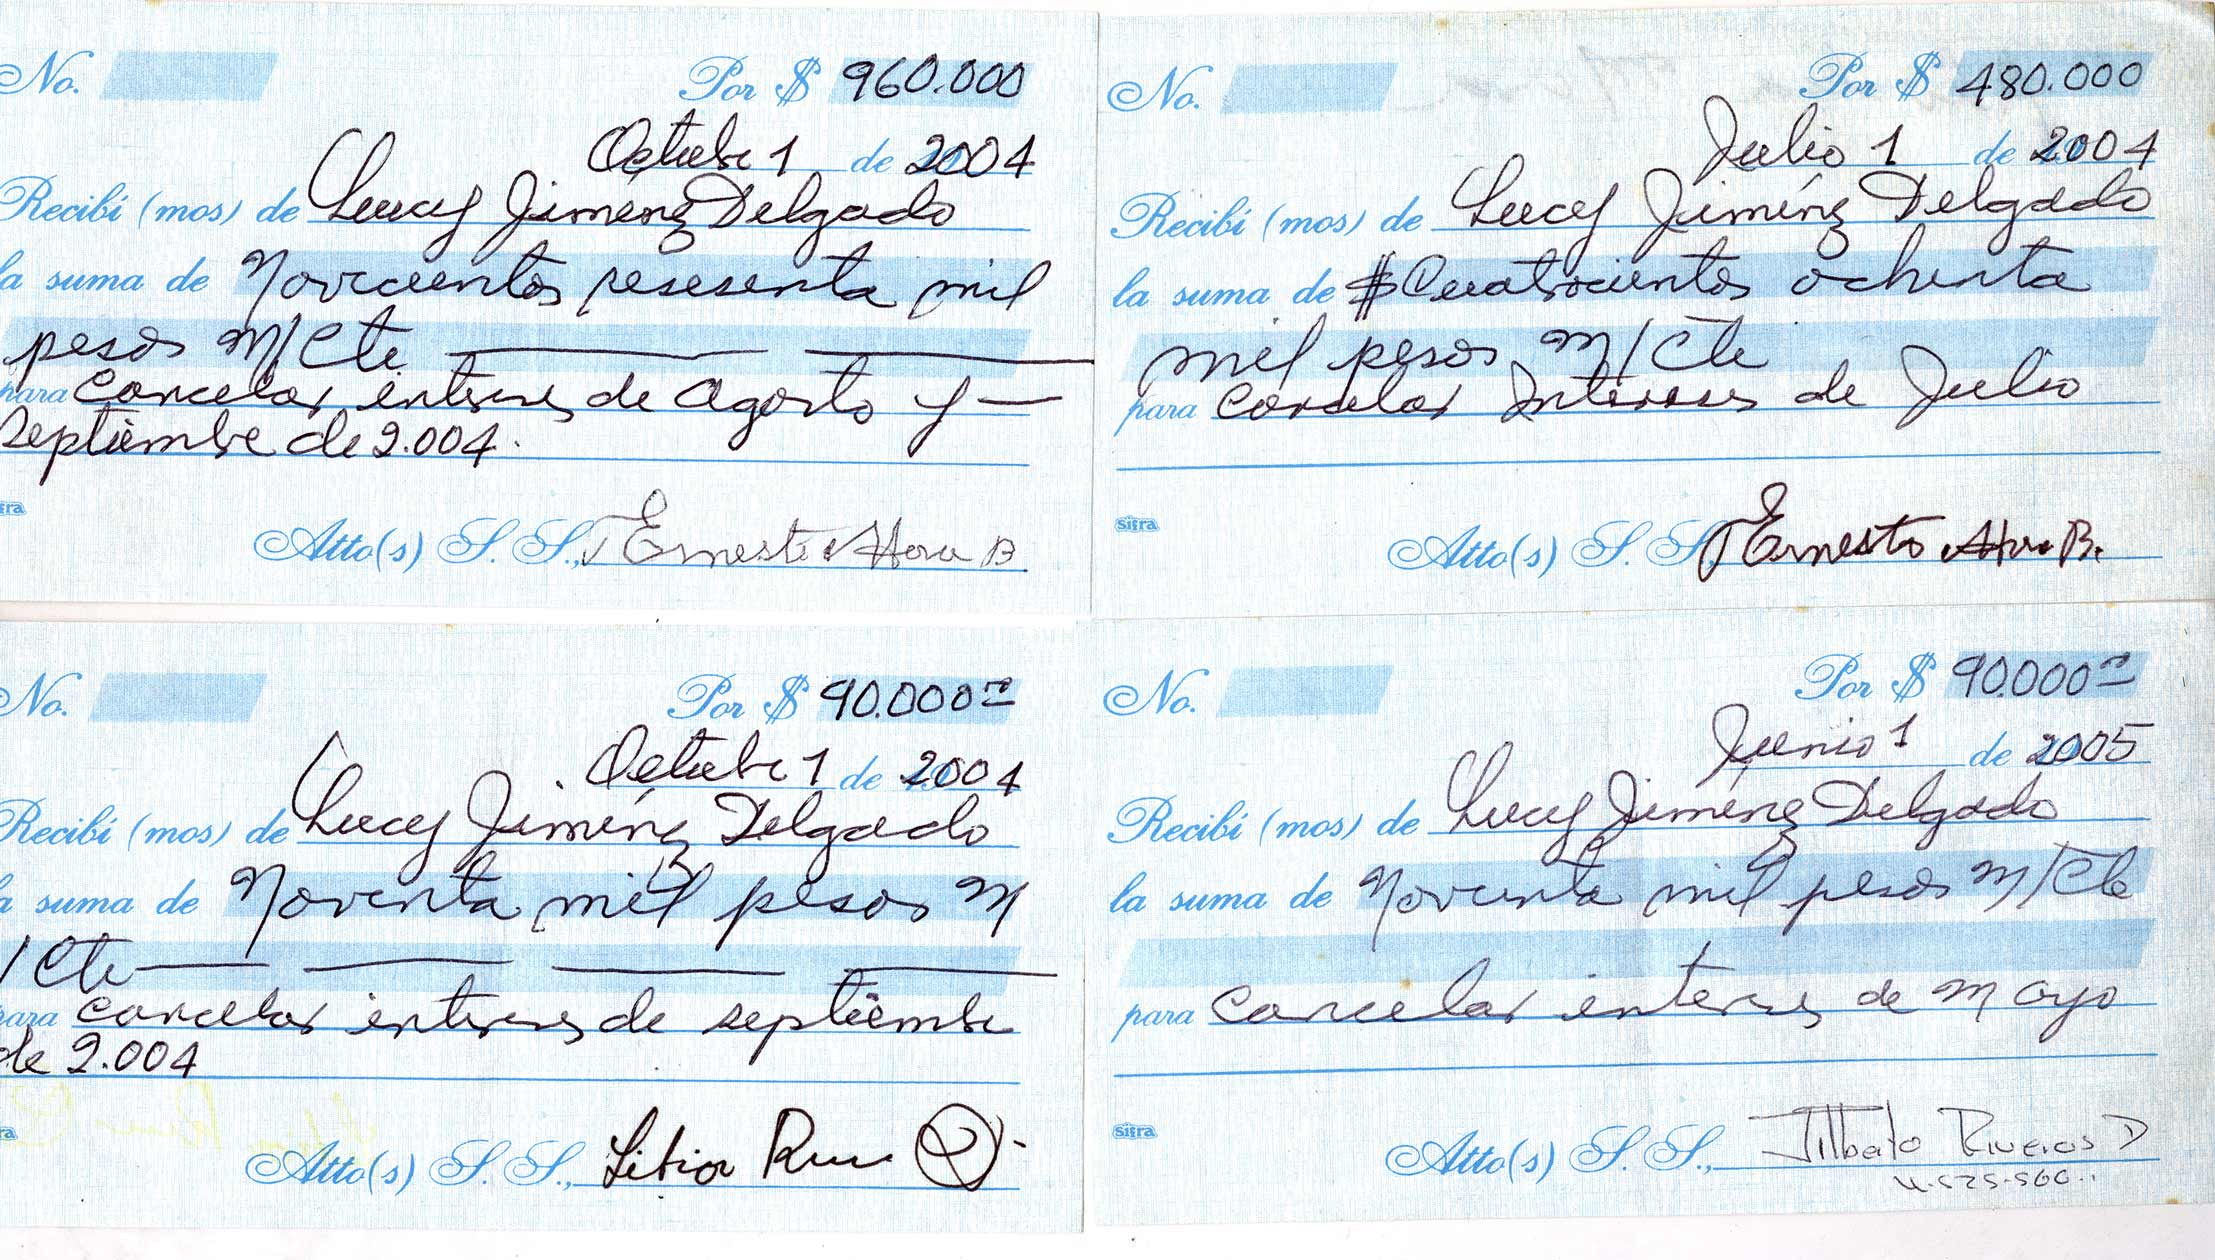 No. Por $ 960.000
Octubre 1 de 2004
Recibí (mos) de Lucy Jiménez Delgado
la suma de Novecientos sesesenta mil
pesos M/Cte.
para Cancelar intereses de Agosto y
septiembre de 2.004.
Atto(s) S. S., Ernesto B
No. Por $ 480.000
Julio 1 de 2004
Recibí (mos) de Lucy Jiménez Delgado
la suma de $ Cuatrocientos ochenta
mil pesos M/Cte
para Cancelar Intereses de Julio
sifra
Atto(s) S. S., Ernesto B.
No. Por $ 90.000
Octubre 1 de 2004
Recibí (mos) de Lucy Jiménez Delgado
la suma de Noventa mil pesos M
/Cte
para Cancelar intereses de septiembre
de 2.004
Atto(s) S. S.,
No. Por $ 90.000
Junio 1 de 2005
Recibí (mos) de Lucy Jiménez Delgado
la suma de Noventa mil pesos M/Cte
para Cancelar intereses de Mayo
sifra
Atto(s) S. S., Jilberto Riveros D
4.525.500